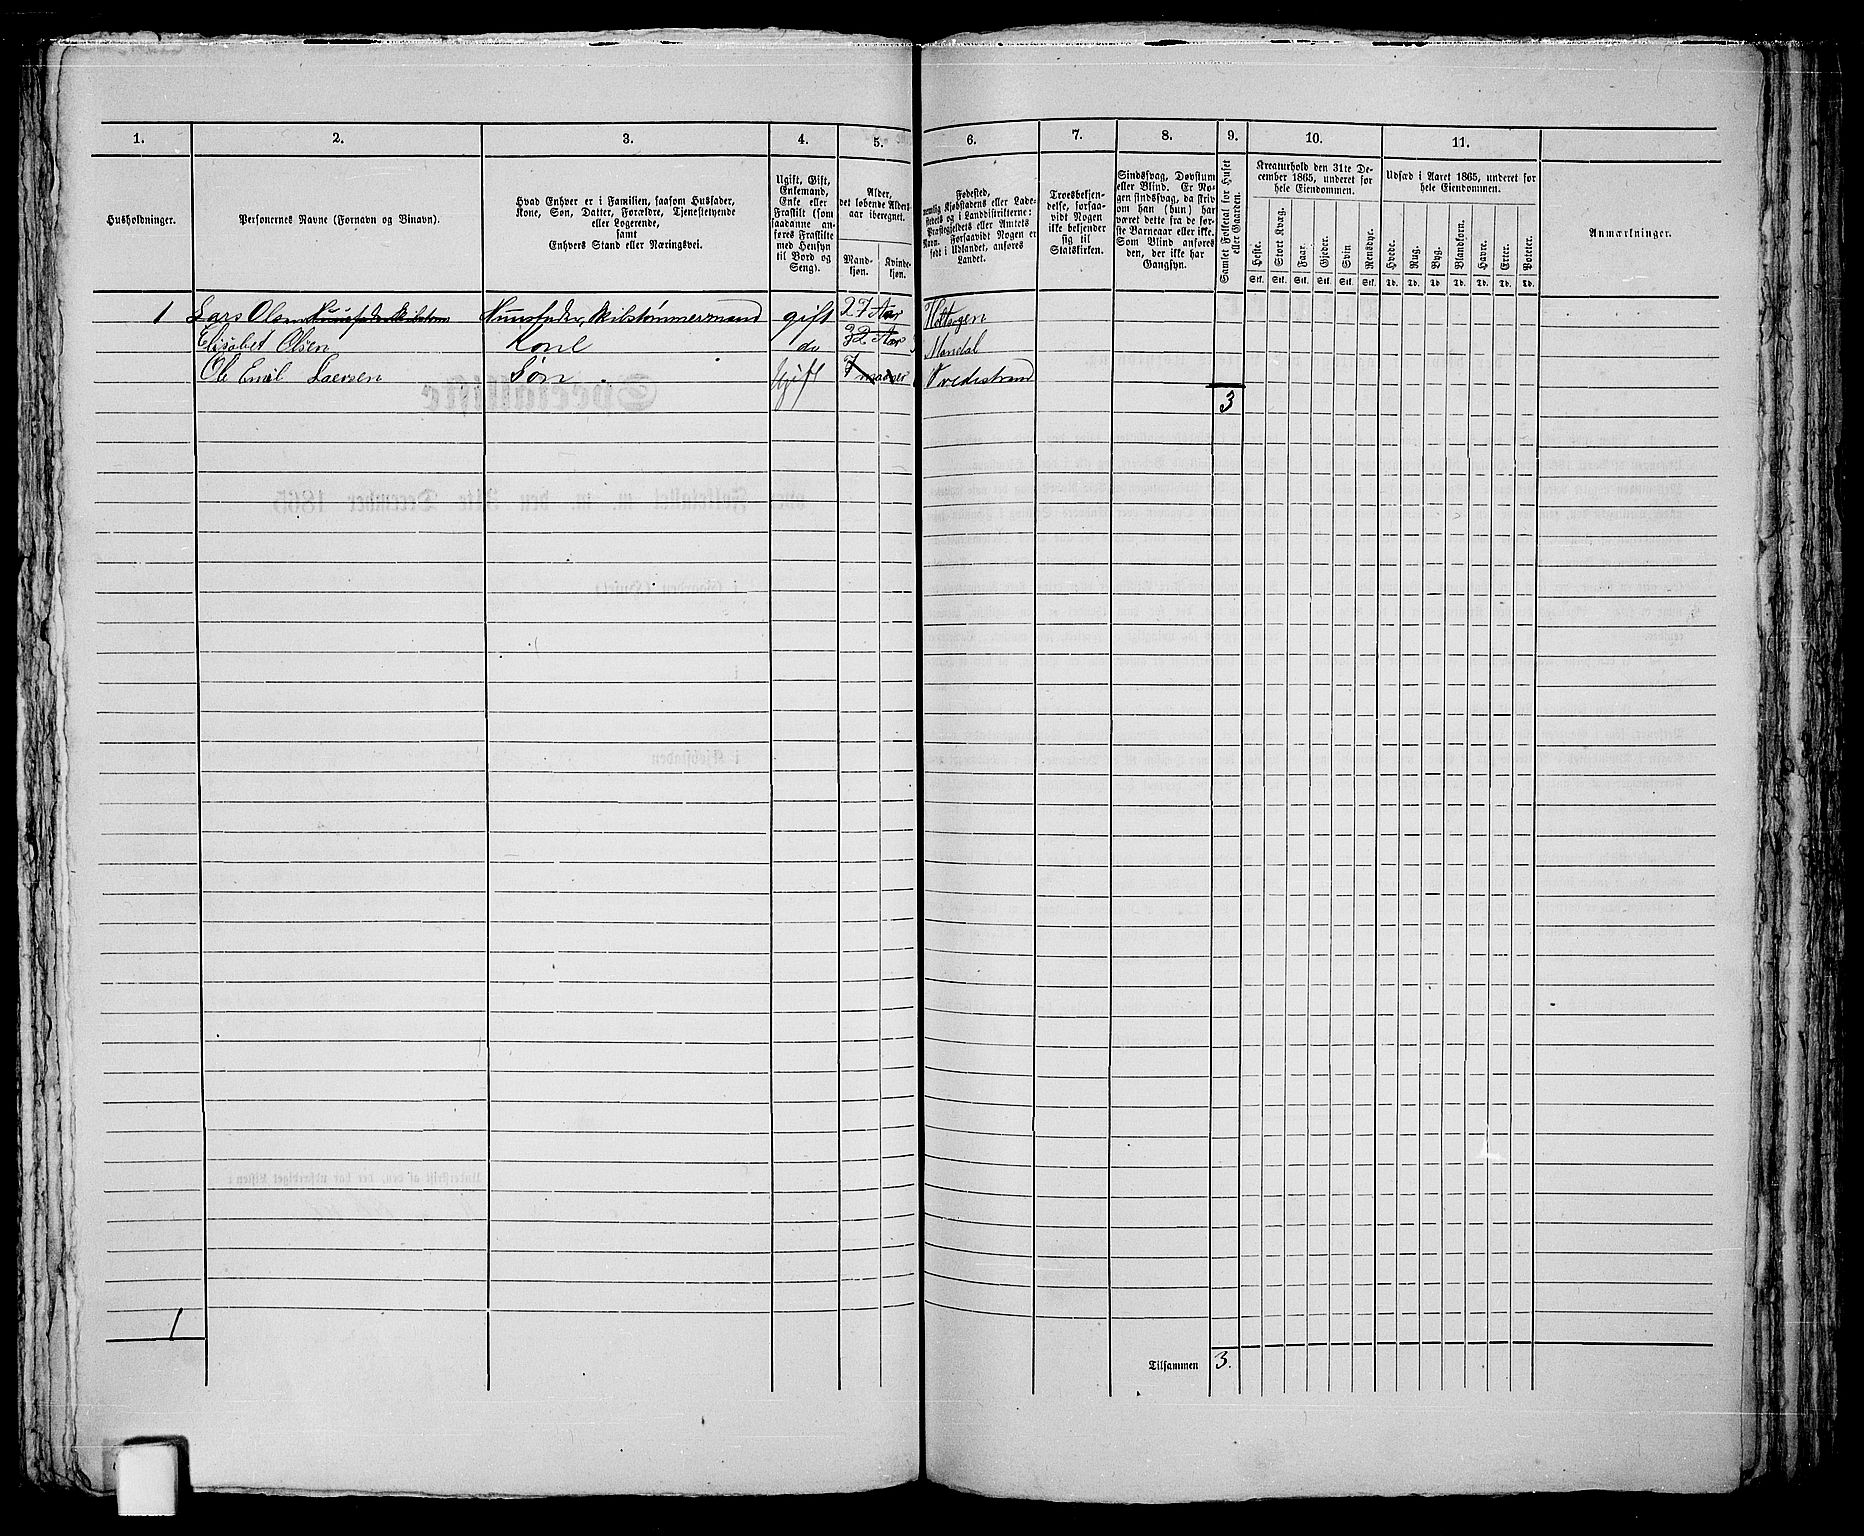 1. 2. 3. 4. 5. 6. 7. 8. 9. 10. 11.
Husholdninger.
Personernes Navne (Fornavn og Binavn).
Hvad Enhver er i Familien, saasom Husfader,
Kone, Søn, Datter, Forældre, Tjenestetyende
eller Logerende,
samt
Enhvers Stand eller Næringsvei.
Ugift, Gift,
Enkemand,
Enke eller
Fraskilt (som
saadanne an-
føres Fraskilte
med Hensyn
til Bord og
Seng).
Alder,
det løbende Alders-
aar iberegnet.
Mand-
kjøn.
Kvinde-
kjøn.
Fødested,
nemlig Kjøbstadens eller Lade-
stedets og i Landdistrikterne:
Præstegjeldets eller Amtets
Navn. Forsaavidt Nogen er
født i Udlandet, anføres
Landet.
Troesbekjen-
delse, forsaa-
vidt Nogen
ikke bekjender
sig til
Statskirken.
Sindssvag, Døvstum
eller Blind. Er No-
gen sindssvag, da skriv
om han (hun) har
været dette fra de før-
ste Barneaar eller ikke.
Som Blind anføres
den, der ikke har
Gangsyn.
Samlet Folketal for Huset
eller Gaarden.
Kreaturhold den 31te De-
cember 1865, underet for
hele Eiendommen.
Heste. Stort Kvæg. Faar. Gjeder. Svin Rensdyr.
Stk. Stk. Stk. Stk. Stk. Stk.
Udsæd i Aaret 1865, underet for
hele Eiendommen.
Hvede. Rug. Byg. Blandkorn. Havre. Erter. Poteter.
Td. Td. Td Td. Td. Td. Td.
Anmærkninger.
1 Lars Olsen Huusfader, Skibstømmermand gift 27 Aar
Elisabet Olsen Kone do 32 Aar Mandal
Ole Emil Laersen Søn Ugift 7 maaner Tvedestrand
3
1
Tilsammen 3.